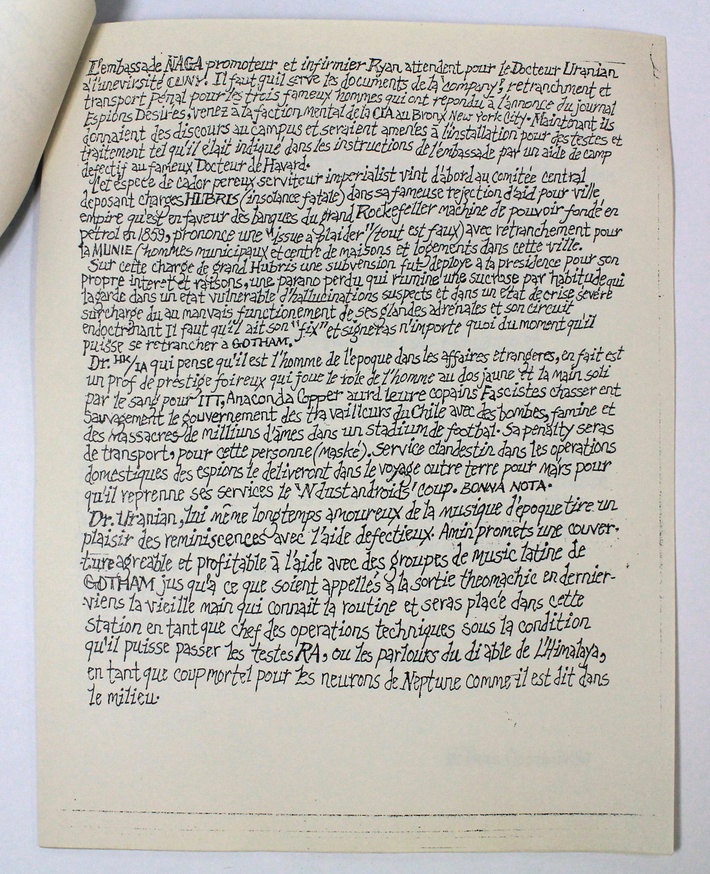 L'embassade NAGA promoteur et infirmier Ryan attendent pour le Docteur Uranian
a l'uneviřsité CUNY. Il faut qu'il serve les documents de la 'company', retranchment et
transport Penal pour les trois fameux hommes qui ont repondu a l'annonce du journal
Espions Désires, venez a la faction mental de la CIA au Bronx New York City. Maintenant ils
donnaient des discours au campus et seraient amenés a l'installation pour des testes et
traitement tel qu'il était indiqué dans les instructions de l'embassade par un aide de camp
defectif au fameux Docteur de Havard.
Cet espece de cador pereux serviteur imperialist vint d'abord au comité central
deposant charges HUBRIS (insolance fatale) dans sa fameuse rejection d'aid pour ville
empire qu'est en faveur des banques du grand Rockefeller machine de pouvoir fondé en
petrol en 1859, prononce une "issue a plaider" (tout est faux) avec retranchement pour
la MUNIE (hommes municipaux et centre de maisons et logements dans cette ville.
Sur cette charge de grand Hubris une subvension fut deployé a la presidence pour son
propre interet et raisons, une parano perdu qui rumine une sucrose par habitude qui
la garde dans un etat vulnerable d'hallucinations suspects et dans un état de crise sévère
surcharge du au manvais functionement de ses glandes adrenales et son circuit
endoctrinant Il faut qu'il ait son "fix" et signeras n'importe quoi du moment qu'il
puisse se retrancher a GOTHAM.
Dr. HK/IA qui pense qu'il est l'homme de l'epoque dans les affaires etrangeres, en fait est
un prof de préstige foireux qui joue le role de l'homme au dos jaune et la main soli
par le sang pour ITT, Anaconda Copper aurd leure copains Fascistes chasser ent
sauvagement le gouvernement des travailleurs du Chile avec des bombes, famine et
des massacres de milliuns d'âmes dans un stadium de footbal. Sa penalty seras
de transport, pour cette personne (maske). Service clandestin dans les operations
domestiques des espions le deliveront dans le voyage outre terre pour Mars pour
qu'il reprenne ses services le 'N dust androids' coup. BONNA NOTA.
Dr. Uranian, lui même longtemps amoureux de la musique d'époque tire un
plaisir des reminiscences avec l'aide defectieux. Amin promets une couver-
ture agreable et profitable à l'aide avec des groupes de Music latine de
GOTHAM jus qu'a ce que soient appellés a la sortie theomachic en dernier-
viens la vieille main qui connait la routine et seras placé dans cette
station en tant que chef des operations techniques sous la condition
qu'il puisse passer les testes RA, ou les parlours du diable de L'Himalaya,
en tant que coup mortel pour les neurons de Neptune comme il est dit dans
le milieu.